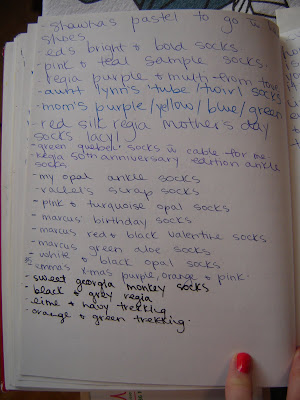 - Shawna's pastel to go w
shoes.
- ed's bright & bold socks
- pink & teal sample socks.
- regia purple & multi-from tow
- aunt lynn's tube/twirl socks
- mom's purple/yellow/blue/green
- red silk regia mother's day
socks lacy!
- green quebec socks w cable for me
- Regia 50th anniversary edition ankle
socks
- my opal ankle socks
- rachel's scrap socks
- pink & turquoise opal socks
- marcus' birthday socks
- marcus red & black valentine socks
- marcus green aloe socks
- white & black opal socks
- emma's x-mas purple, orange & pink.
- sweet georgia monkey socks
- black & grey regia
- lime & navy trekking
- orange & green trekking.